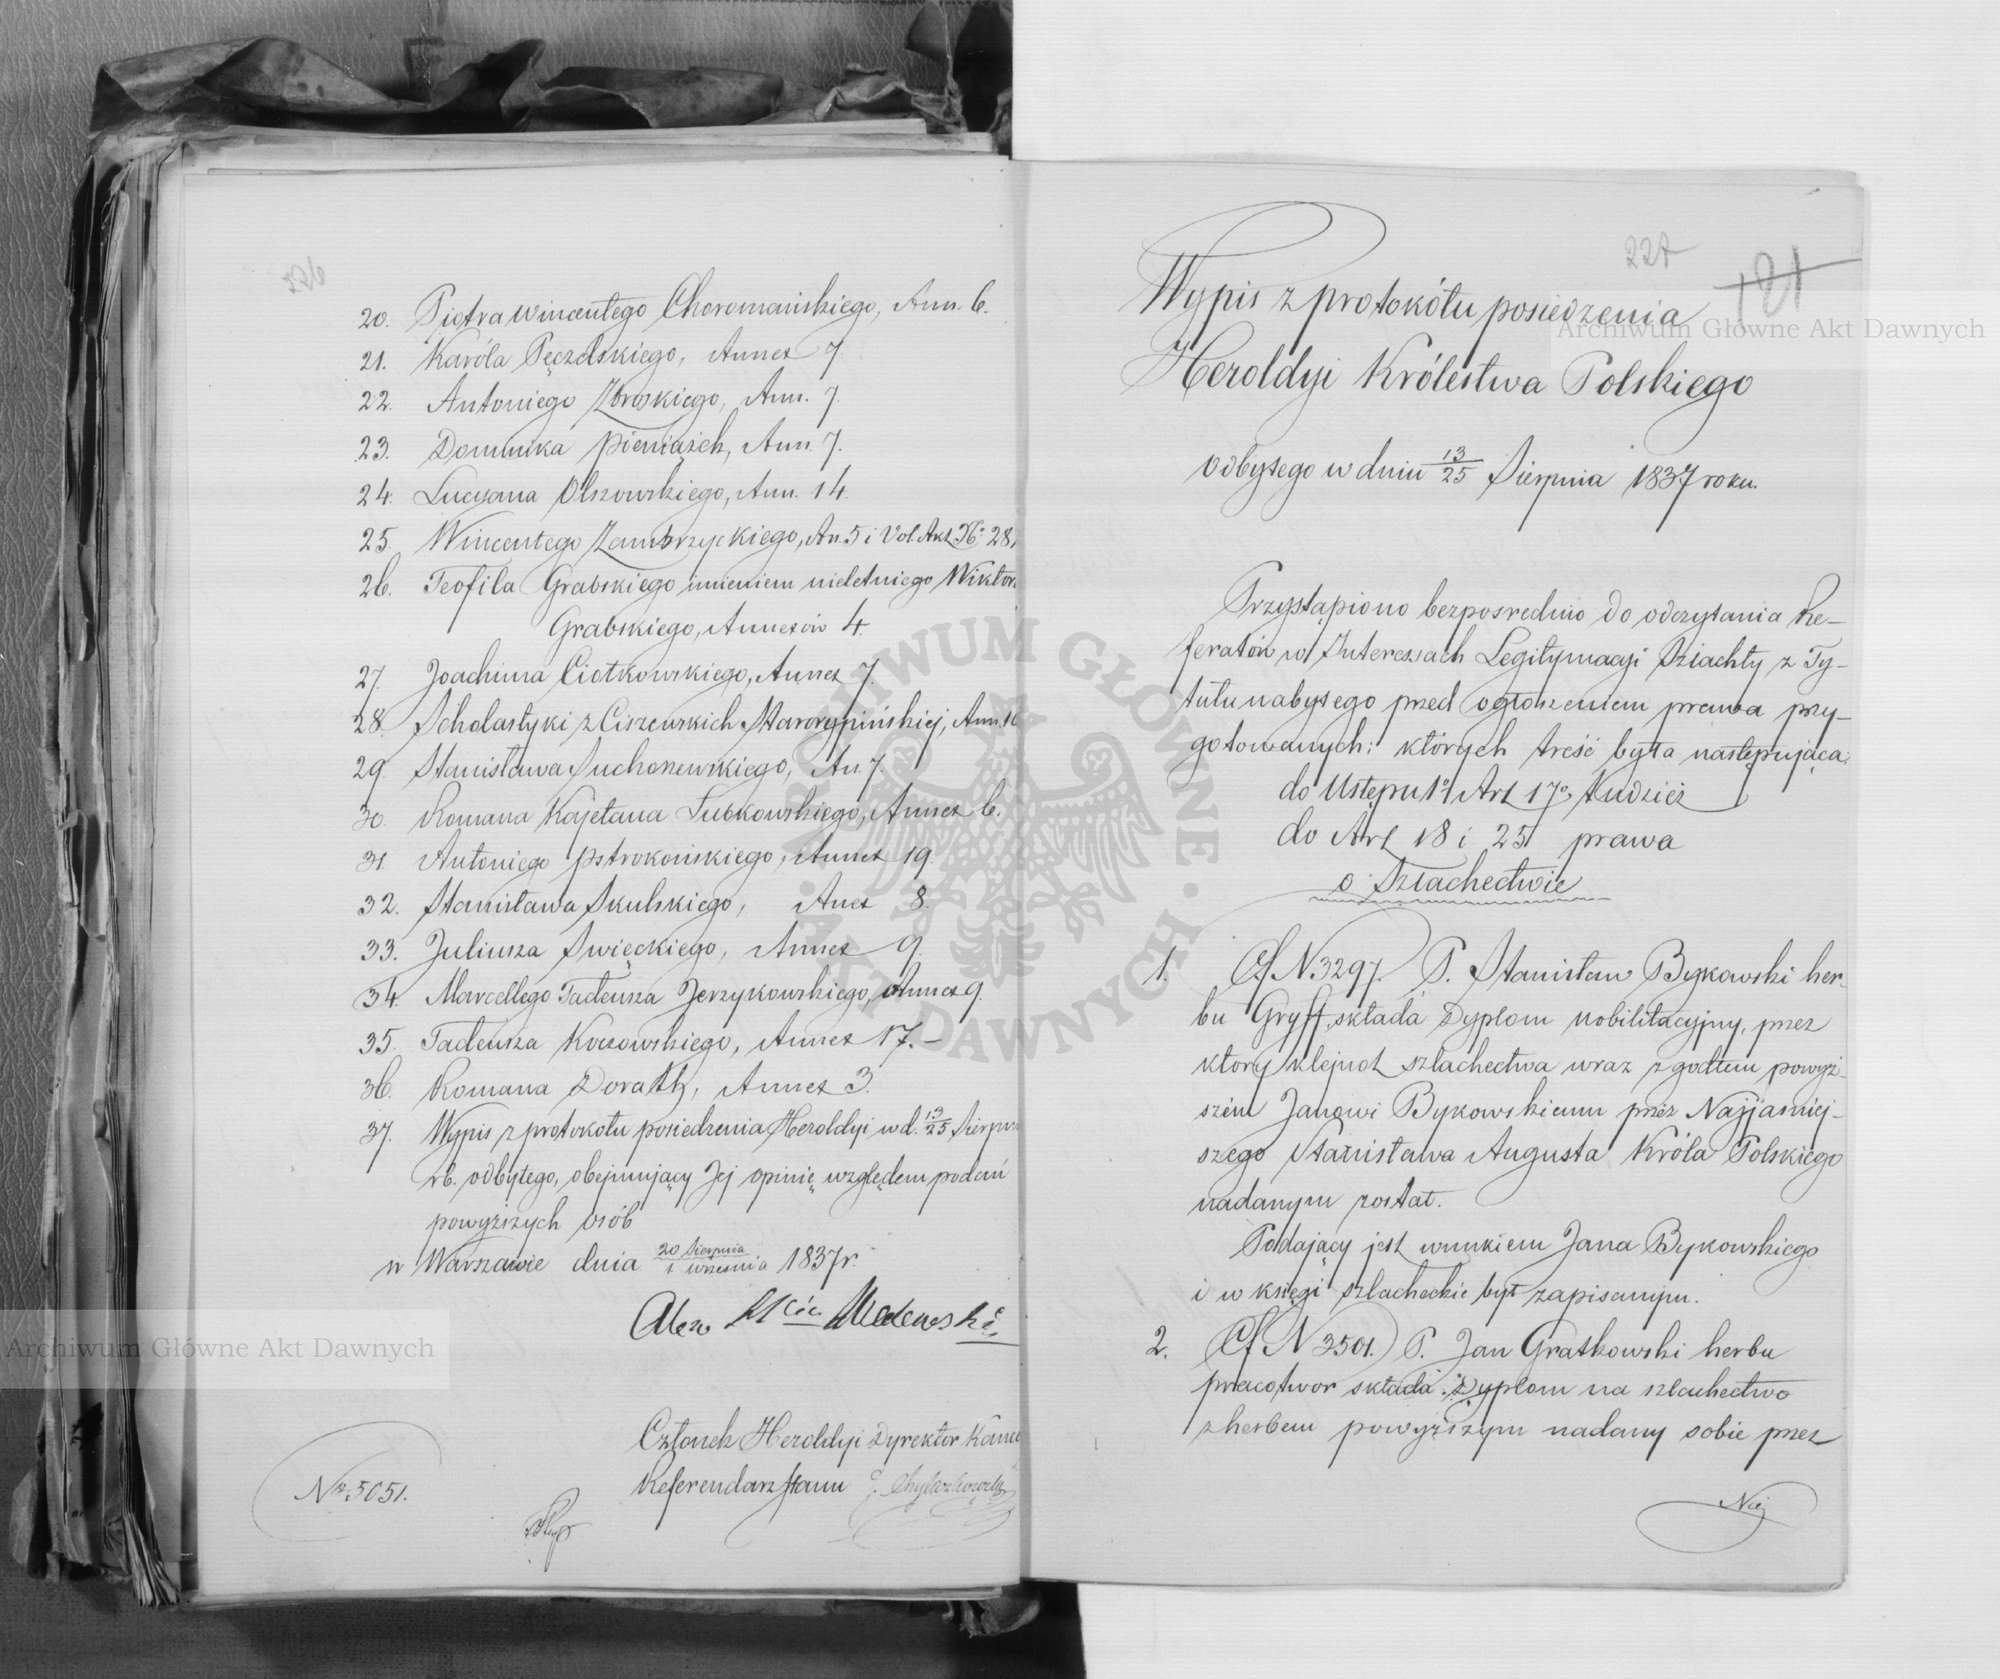 20. Piotra Wincentego Choromańskiego, Ann. 6.
21. Karóla Pęczelskiego, Annex 7.
22. Antoniego Zbroskiego, Ann. 7.
23. Dominika Pieniążek, Ann. 7.
24. Lucyana Olszowskiego, Ann. 14.
25. Wincentego Zambrzyckiego, An. 5 i Vol. Akt No 28,
26. Teofila Grabskiego imieniem nieletniego Wiktor
Grabskiego, Annexów 4.
27. Joachima Ciotkowskiego, Annex 7.
28. Scholastyki z Ciszewskich Starorypińskiej, Ann. 1
29. Stanisława Suchorzewskiego, An. 7.
30. Romana Kajetana Łubkowskiego, Annex 6.
31. Antoniego Pstrokońskiego, Annex 19.
32. Stanisława Skulskiego, Anex 8.
33. Juliusza Święckiego, Annex 9.
34. Marcellego Tadeusza Jerzykowskiego, Annex 9.
35. Tadeusza Kossowskiego, Annex 17. –
36. Romana Dorath, Annex 3.
37. Wypis z protokołu posiedzenia Heroldyi w d. 13/25 Sierpn
rb. odbytego, obejmujący Jej opinię względem podań
powyższych osób
w Warszawie dnia 20 Sierpnia/1 września 1837 r.
Członek Heroldyi Dyrektor Kance
Referendarz Stanu
No 5051.
227
121
Wypis z protokółu posiedzenia
Heroldyi Królestwa Polskiego
odbytego w dniu 13/25 Sierpnia 1837 roku.
Przystąpiono bezpośrednio do odczytania Re-
feratów w Interessach Legitymacyi Szlachty z Ty-
tułu nabytego przed ogłoszeniem prawa przy-
gotowanych: których treść była następująca:
do Ustępu 1o Art 17o, tudzież
do Art 18 i 25 prawa
o Szlachectwie
1. Cf N 3297. P. Stanisław Bykowski her-
bu Gryff, składa Dyplom nobilitacyjny, przez
który klejnot szlachectwa wraz z godłem powyż-
szém Janowi Bykowskiemu przez Najjaśniej-
szego Stanisława Augusta Króla Polskiego
nadanym został.
Podający jest wnukiem Jana Bykowskiego
i w księgi szlacheckie był zapisanym.
2. Cf N 3501. P. Jan Gratkowski herbu
Pracotwor składa Dyplom na szlachectwo
z herbem powyższym nadany sobie przez
Naj
Archiwum Główne Akt Dawnych
Archiwum Główne Akt Dawnych
ARCHIWUM GŁÓWNE AKT DAWNYCH